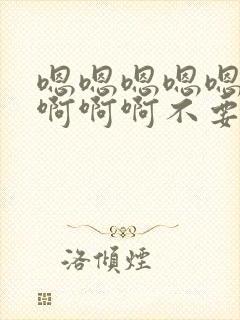 嗯嗯嗯嗯嗯
啊啊啊不要
洛倾煙